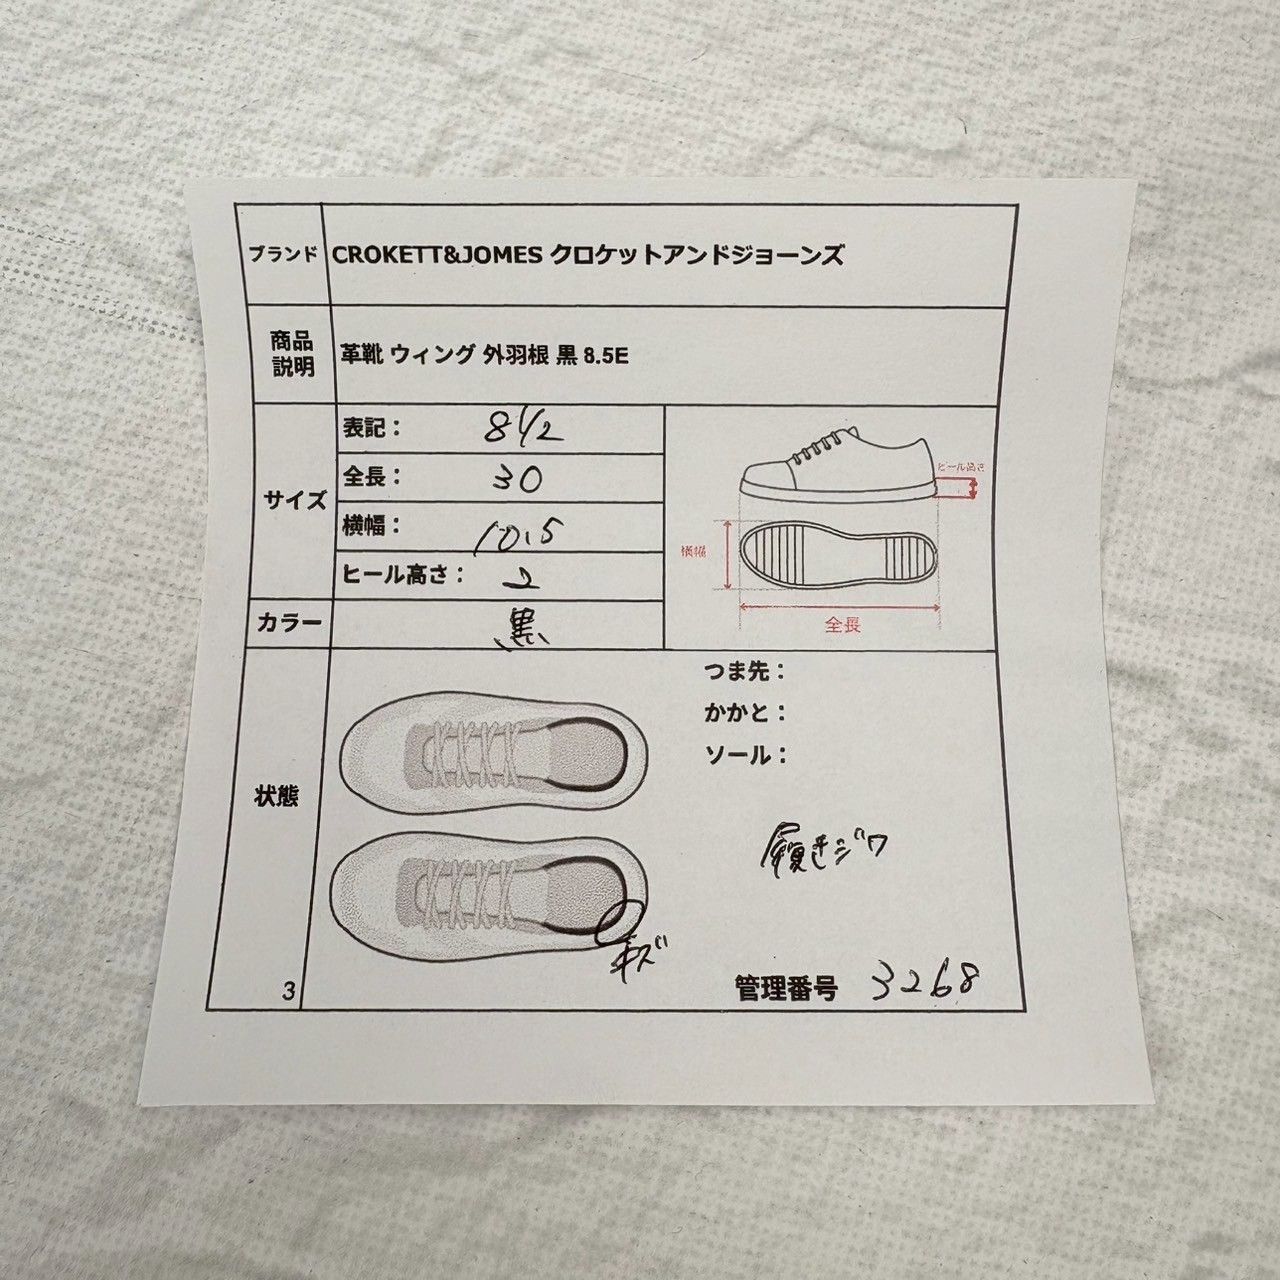 ブランド CROKETT&JOMES クロケットアンドジョーンズ
商品
説明
革靴 ウィング 外羽根 黒 8.5E
サイズ
表記： 8 1/2
全長： 30
横幅： 10.5
ヒール高さ： 2
ヒール高さ
横幅
全長
カラー 黒
状態
つま先：
かかと：
ソール：
履きジワ
キズ
3
管理番号 3268